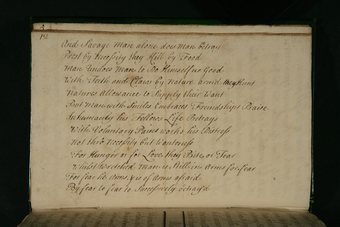 And Savage Man alone does Man betray
Prest by Necessity they Kill by Food
Man Undoes Man to Do himself no Good
With Teeth and Claws by Nature armd they Hunt
Natures Allowance to Supply their Want
But Man with Smiles Embraces Freindships Praise
Inhumanly his Fellows Life Betrays
With Voluntary Pains works his Distress
Not thro Necessity but Wantoness
For Hunger or for Love they Bite or Tear
Whilst wretched Man is Still in Arms for fear
For fear he Arms & is of Arms afraid
By fear to fear Successively betray'd